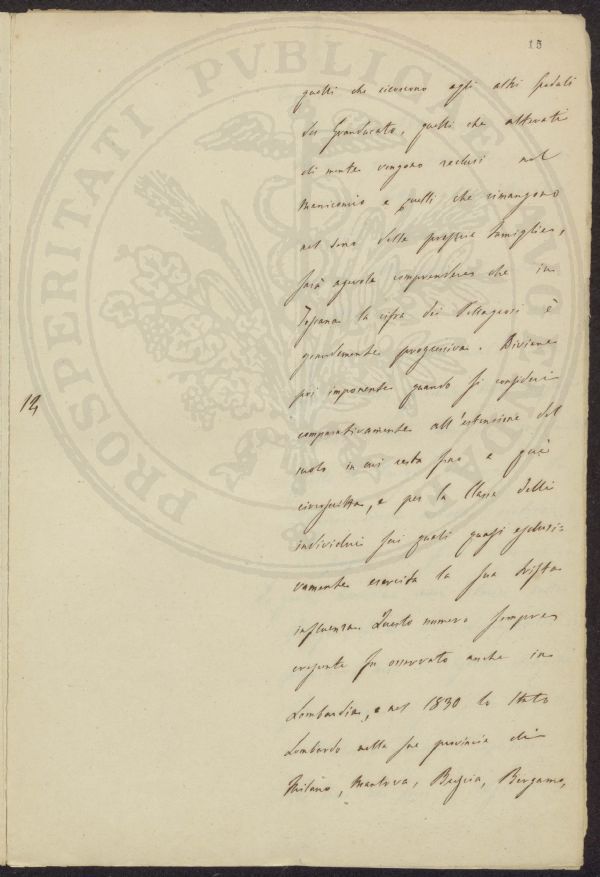 15
quelli che ricorrono agli altri spedali
del Granducato, quelli che alterati
di mente vengono reclusi nel
Manicomio e quelli che rimangono
nel seno delle proprie famiglie,
sarà agevole comprendere che in
Toscana la cifra dei Pellagrosi è
grandemente progressiva. Diviene
poi imponente quando si consideri
comparativamente all'estensione del
suolo in cui resta fino a qui
circoscritta, e per la Classe delli
individui sui quali quasi esclusi=
vamente esercita la sua trista
influenza. Questo numero sempre
crescente fu osservato anche in
Lombardia, e nel 1830 lo Stato
Lombardo nelle sue provincie di
Milano, Mantova, Brescia, Bergamo,
12
PROSPERITATI PVBLICAE